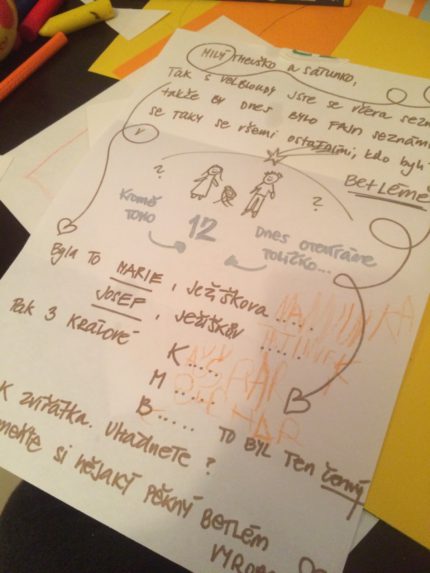 MILÝ A SATUNKO,
TAK S VELBLOUDY JSTE SE VČERA
TAKŽE BY DNES BYLO FAJN SEZNÁMI
SE TAKY SE VŠEMI OSTATNÍMI, KDO BYLI
V BETLÉMĚ
? ?
KROMĚ TOHO 12 DNES OTEVÍRÁME
POLÍČKO...
BYLA TO MARIE, JEŽÍŠKOVA MAMINKA
JOSEF, JEŽÍŠKŮV TATÍNEK
PAK 3 KRÁLOVÉ
K.....
M.....
B..... TO BYL TEN ČERNÝ
K ZVÍŘÁTKA. UHÁDNETE?
SI NĚJAKÝ PĚKNÝ BETLÉM